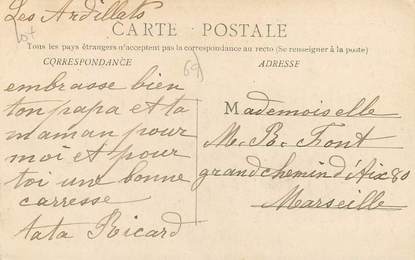 Les Ardillats
CARTE POSTALE
Tous les pays étrangers n'acceptent pas la correspondance au recto (Se renseigner à la poste)
CORRESPONDANCE
69
embrasse bien
ton papa et ta
maman pour
moi et pour
toi une bonne
carresse
tata Ricard
ADRESSE
Mademoiselle
M. B. Font
grand chemin d'Aix 80
Marseille